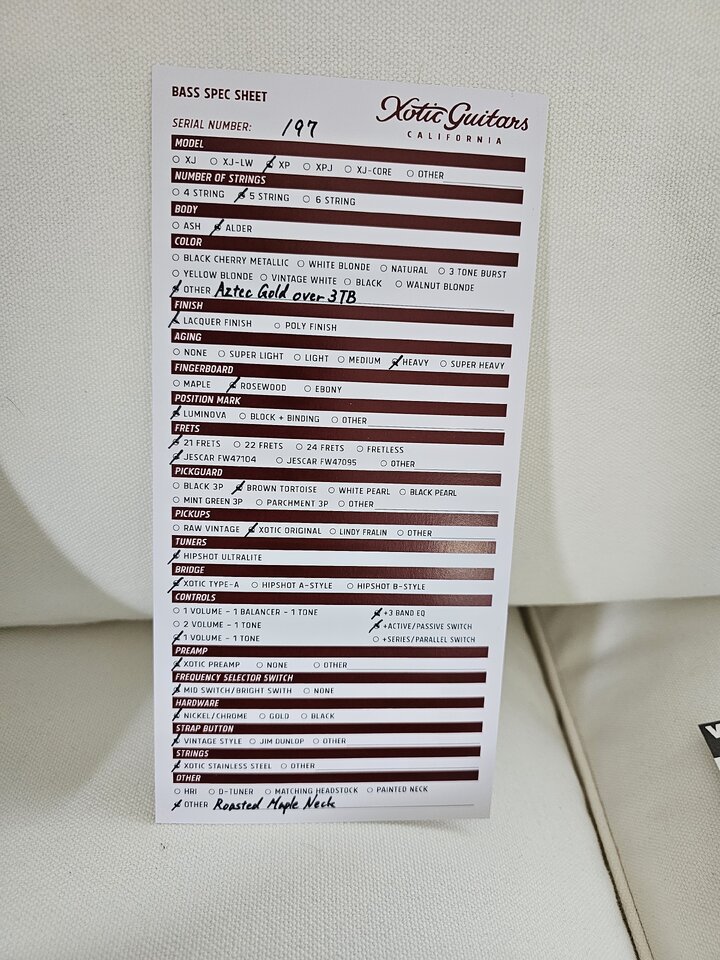 BASS SPEC SHEET
Xotic Guitars
CALIFORNIA
SERIAL NUMBER: 197
MODEL
XJ XJ-LW XP XPJ XJ-CORE OTHER
NUMBER OF STRINGS
4 STRING 5 STRING 6 STRING
BODY
ASH ALDER
COLOR
BLACK CHERRY METALLIC WHITE BLONDE NATURAL 3 TONE BURST
YELLOW BLONDE VINTAGE WHITE BLACK WALNUT BLONDE
OTHER Aztec Gold over 3TB
FINISH
LACQUER FINISH POLY FINISH
AGING
NONE SUPER LIGHT LIGHT MEDIUM HEAVY SUPER HEAVY
FINGERBOARD
MAPLE ROSEWOOD EBONY
POSITION MARK
LUMINOVA BLOCK + BINDING OTHER
FRETS
21 FRETS 22 FRETS 24 FRETS FRETLESS
JESCAR FW47104 JESCAR FW47095 OTHER
PICKGUARD
BLACK 3P BROWN TORTOISE WHITE PEARL BLACK PEARL
MINT GREEN 3P PARCHMENT 3P OTHER
PICKUPS
RAW VINTAGE XOTIC ORIGINAL LINDY FRALIN OTHER
TUNERS
HIPSHOT ULTRALITE
BRIDGE
XOTIC TYPE-A HIPSHOT A-STYLE HIPSHOT B-STYLE
CONTROLS
1 VOLUME - 1 BALANCER - 1 TONE +3 BAND EQ
2 VOLUME - 1 TONE +ACTIVE/PASSIVE SWITCH
1 VOLUME - 1 TONE +SERIES/PARALLEL SWITCH
PREAMP
XOTIC PREAMP NONE OTHER
FREQUENCY SELECTOR SWITCH
MID SWITCH/BRIGHT SWITH NONE
HARDWARE
NICKEL/CHROME GOLD BLACK
STRAP BUTTON
VINTAGE STYLE JIM DUNLOP OTHER
STRINGS
XOTIC STAINLESS STEEL OTHER
OTHER
HRI D-TUNER MATCHING HEADSTOCK PAINTED NECK
OTHER Roasted Maple Neck